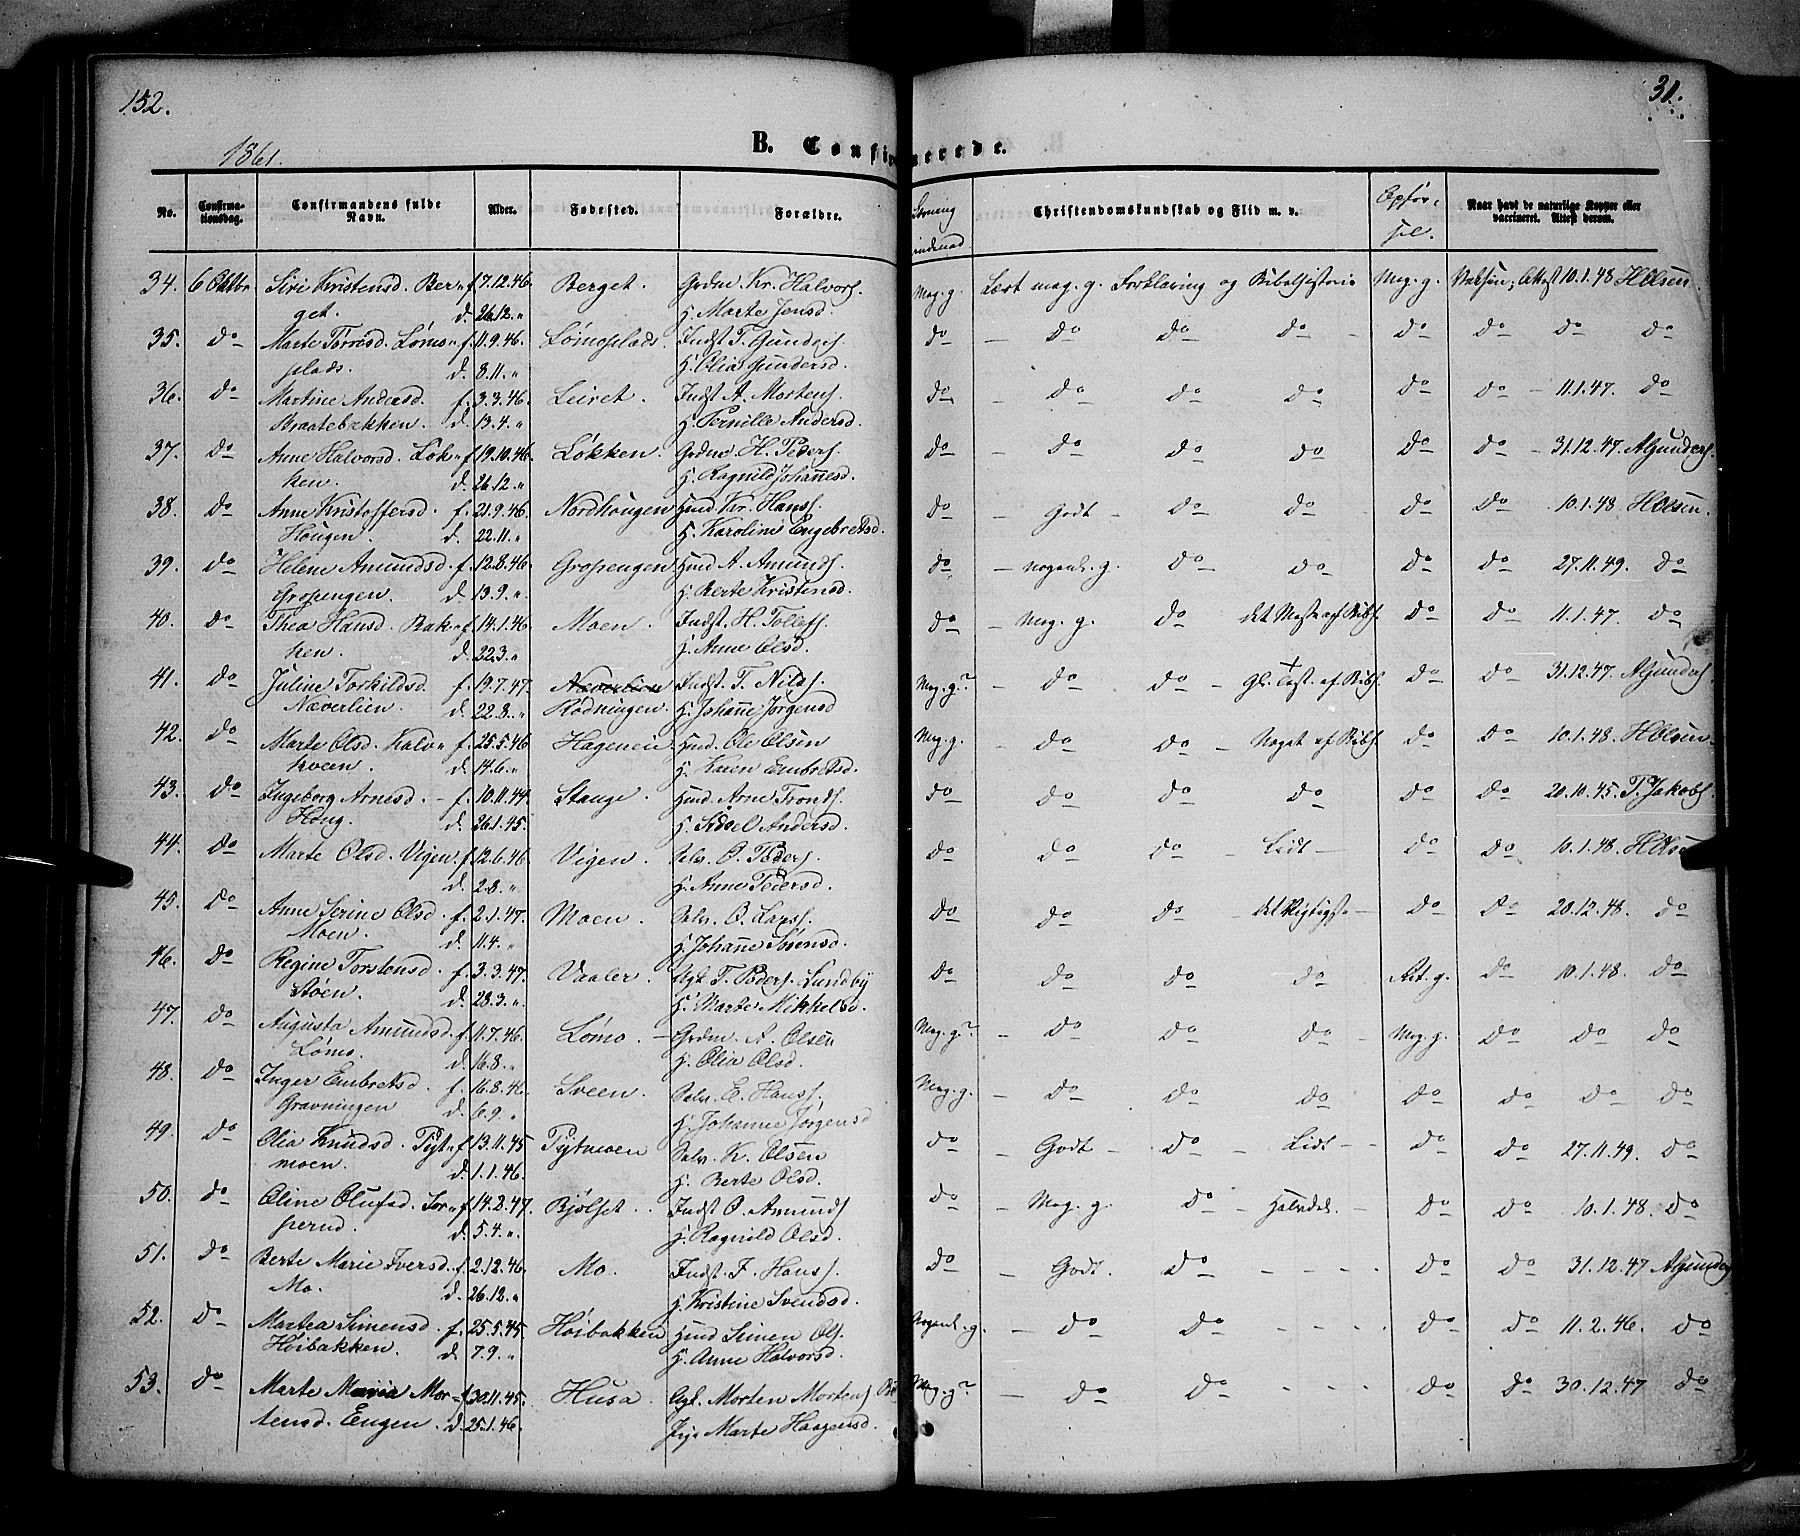 152.
31.
1861.
B. Confirmerede.
No. Confirmationsdag. Confirmandens fulde Navn. Alder. Fødested. Forældre. Læsning indenad Christendomskundskab og Flid m. v. Opførsel. Naar havt de naturlige Kopper eller vaccineret. Attest derom.
34. 6 Oktbr Siri Kristensd. Ber- f. 7.12.46. Berget. Grdm Kr. Halvors. Meg. g. Lært meg. g. Forklaring og Bibelhistorie Meg. g. Vaksin; Attest 10.1.48 HOlsen.
get. d. 26.12. „ H. Marte Jensd.
35. do Marte Torresd. Lømo- f. 11.9.46. Lømoplads. Indst T. Gunders. do — do do do — do do do do
plads. d. 8.11. „ H. Olia Gundersd.
36. do Martine Andersd. f. 3.3.46. Leiret. Indst A. Mortens. do — do do do do do — 11.1.47. do
Braatebakken. d. 13.4. „ H. Pernille Andersd.
37. do Anne Halvorsd. Løk- f. 19.10.46. Løkken. Grdm H. Peders. do — do do do do do — 31.12.47. AGunders.
ken. d. 26.12. „ H. Ragnild Johannesd.
38. do Anne Kristoffersd. f. 21.9.46. Nordhougen Husm Kr. Hans. do — Godt — do do do do — 10.1.48 HOlsen.
Hougen. d. 22.11. „ H. Karoline Engebretsd.
39. do Helene Amundsd. f. 12.8.46. Grosengen Husm A. Amunds. do — nogenl. g. do do do do 27.11.49. do
Grosengen. d. 13.9. „ H. Berte Kristensd.
40. do Thea Hansd. Bak- f. 14.1.46. Moen. Indst. H. Tollefs. do — Meg. g. do det Meste af Bibh. do do 11.1.47. do
ken. d. 22.3. „ H. Anne Olsd.
41. do Juline Torkildsd. f. 19.7.47. Næverlien Indst. T. Nilds. Meg. g.? — do do — Gl. Test. af Bibh. do do 31.12.47. AGunders.
Næverlien. d. 22.8. „ Rødningen. H. Johanne Jørgensd
42. do Marte Olsd. Kalv- f. 25.5.46 Hageneie Husm. Ole Olsen Meg. g. — do do — Noget af Bibh. do do — 10.1.48. HOlsen.
kveen. d. 14.6. „ H. Karen Embretsd.
43. do Ingeborg Arnesd. — f. 10.11.44. Stange. Husm. Arne Tronds. do — do do do do do — 20.10.45. T. Jakobs.
Houg. d. 26.1.45. H. Sidsel Andersd.
44. do Marte Olsd. Vigen f. 12.6.46 Vigen. Selv. O. Peders. do do do — Lidt — do do — 10.1.48. HOlse
d. 2.8. „ H. Anne Pedersd.
45. do Anne Serine Olsd f. 2.1.47. Moen. Selv. O. Larss. do do do — det Vigtigste — do do — 20.12.48. do
Moen. d. 11.4. „ H. Johanne Sørensd.
46. do Regine Torstensd. f. 3.3.47. Vaaler. Ugt T. Peders. Lundby do do do do Rit. g. do 10.1.48. do
Støen. d. 28.3. „ H. Marte Mikkelsd.
47. do Augusta Amundsd. f. 11.7.46. Lømo. — Grdm. A. Olsen Meg. g.? — do do do — Meg. g. do do do
Lømo. d. 16.8. „ H. Olia Olsd.
48. do Inger Embretsd. f. 16.8.46. Sveen. Selv. E. Hans. Meg. g. — do do do do do do do
Gravningen d. 6.9. „ H. Johanne Jørgensd
49. do Olia Knudsd. Tyt- f. 13.11.45 Tytmoen Selv. K. Olsen do — Godt — do — Lidt — do do 27.11.49. do
moen. d. 1.1.46. H. Berte Olsd.
50. do Oline Olufsd. Tor- f. 14.2.47. Bjølset. Indst O. Amunds do — Meg. g. do — Halvdel. — do do 10.1.48. do
pernd. d. 5.4. „ H. Ragnild Olsd.
51. do Berte Marie Iversd. f. 2.12.46. Mo. Indst. I. Hans. do — Godt. do - - - - do do 31.12.47 AGunders
Mo. d. 26.12. „ H. Kristine Svendsd.
52. do Martea Simensd. f. 25.5.45. Høibakken Husm Simen Ols. Nogenl. g. — do do - - - - do do 11.2.46. do
Høibakken. d. 7.9. „ H. Anne Halvorsd.
53. do Marte Maria Mor- f. 30.11.45. Husa. Ugt. Morten Mortens Meg. g.? — do do - - - - do do 30.12.47 do
tensd. Engen. d. 25.1.46. Pige Marte Haagensd.